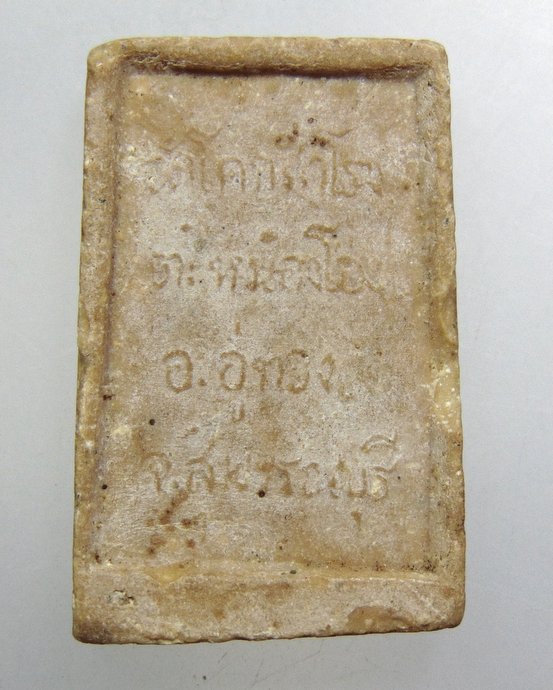 วัดโคกสำโรง
ต.หนองโอ่ง
อ.อู่ทอง
จ.สุพรรณบุรี